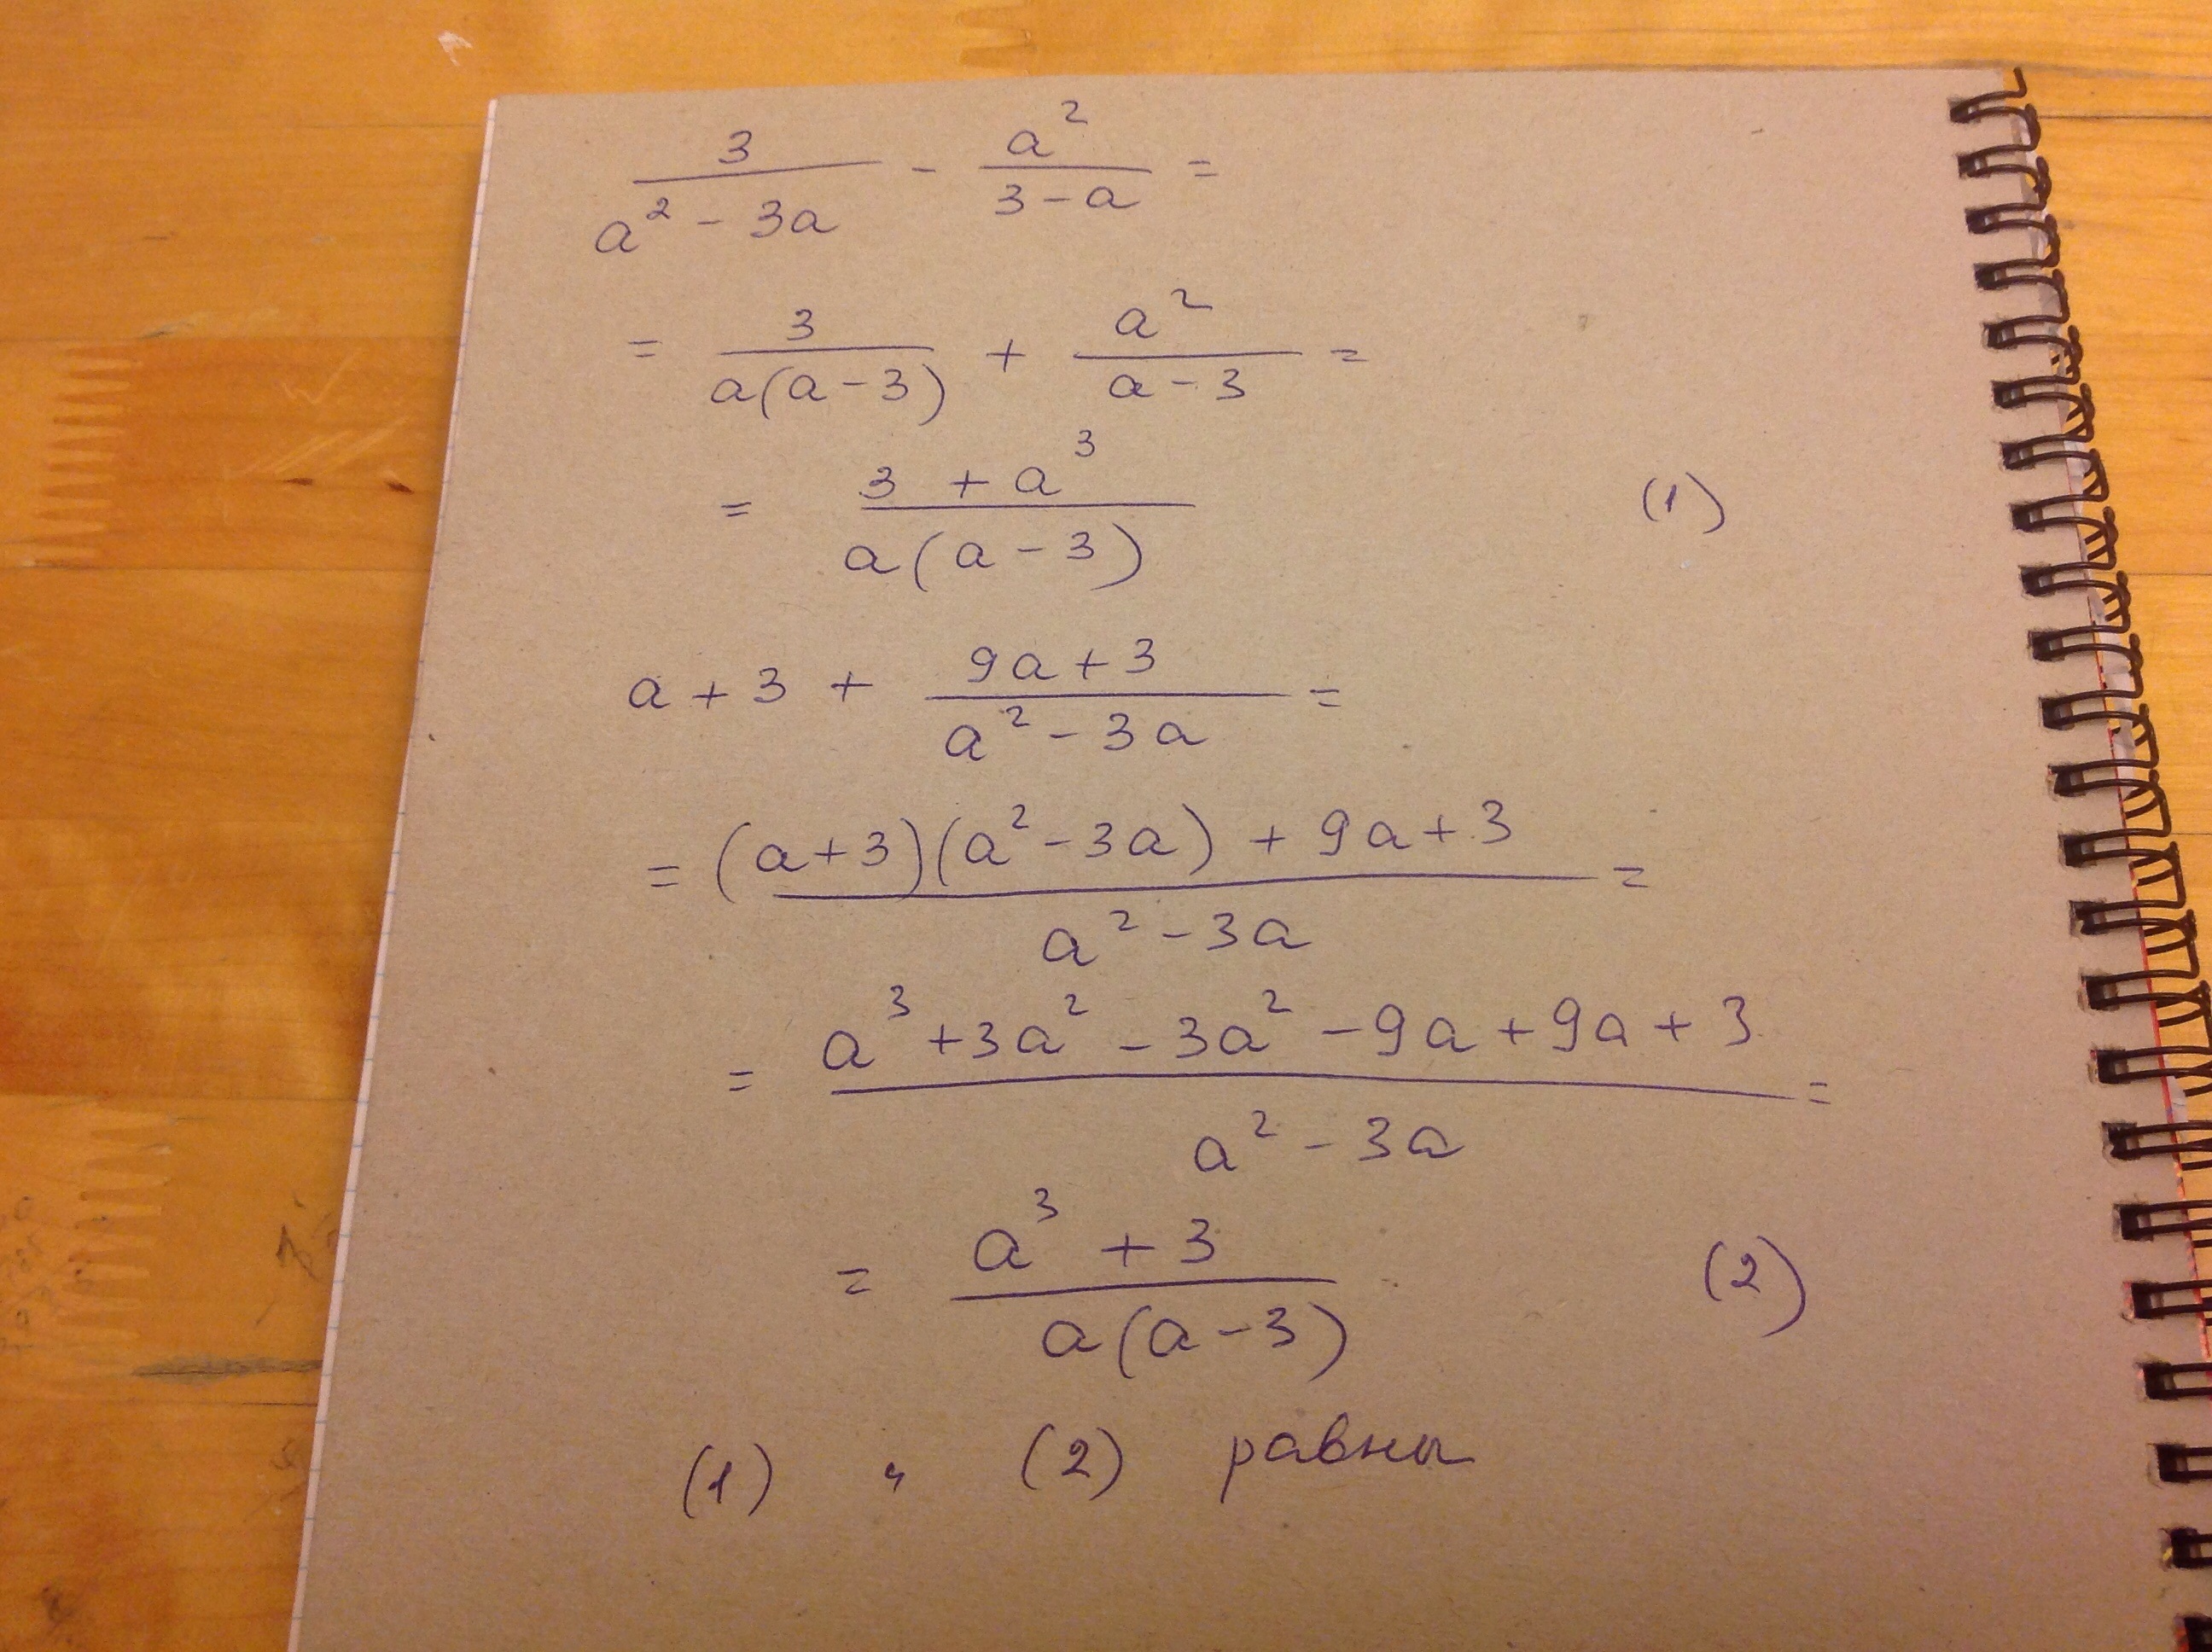 3/(a² - 3a) - a²/(3 - a) =
= 3/(a(a - 3)) + a²/(a - 3) =
= (3 + a³)/(a(a - 3)) (1)
a + 3 + (9a + 3)/(a² - 3a) =
= ((a + 3)(a² - 3a) + 9a + 3)/(a² - 3a) =
= (a³ + 3a² - 3a² - 9a + 9a + 3)/(a² - 3a) =
= (a³ + 3)/(a(a - 3)) (2)
(1) и (2) равны